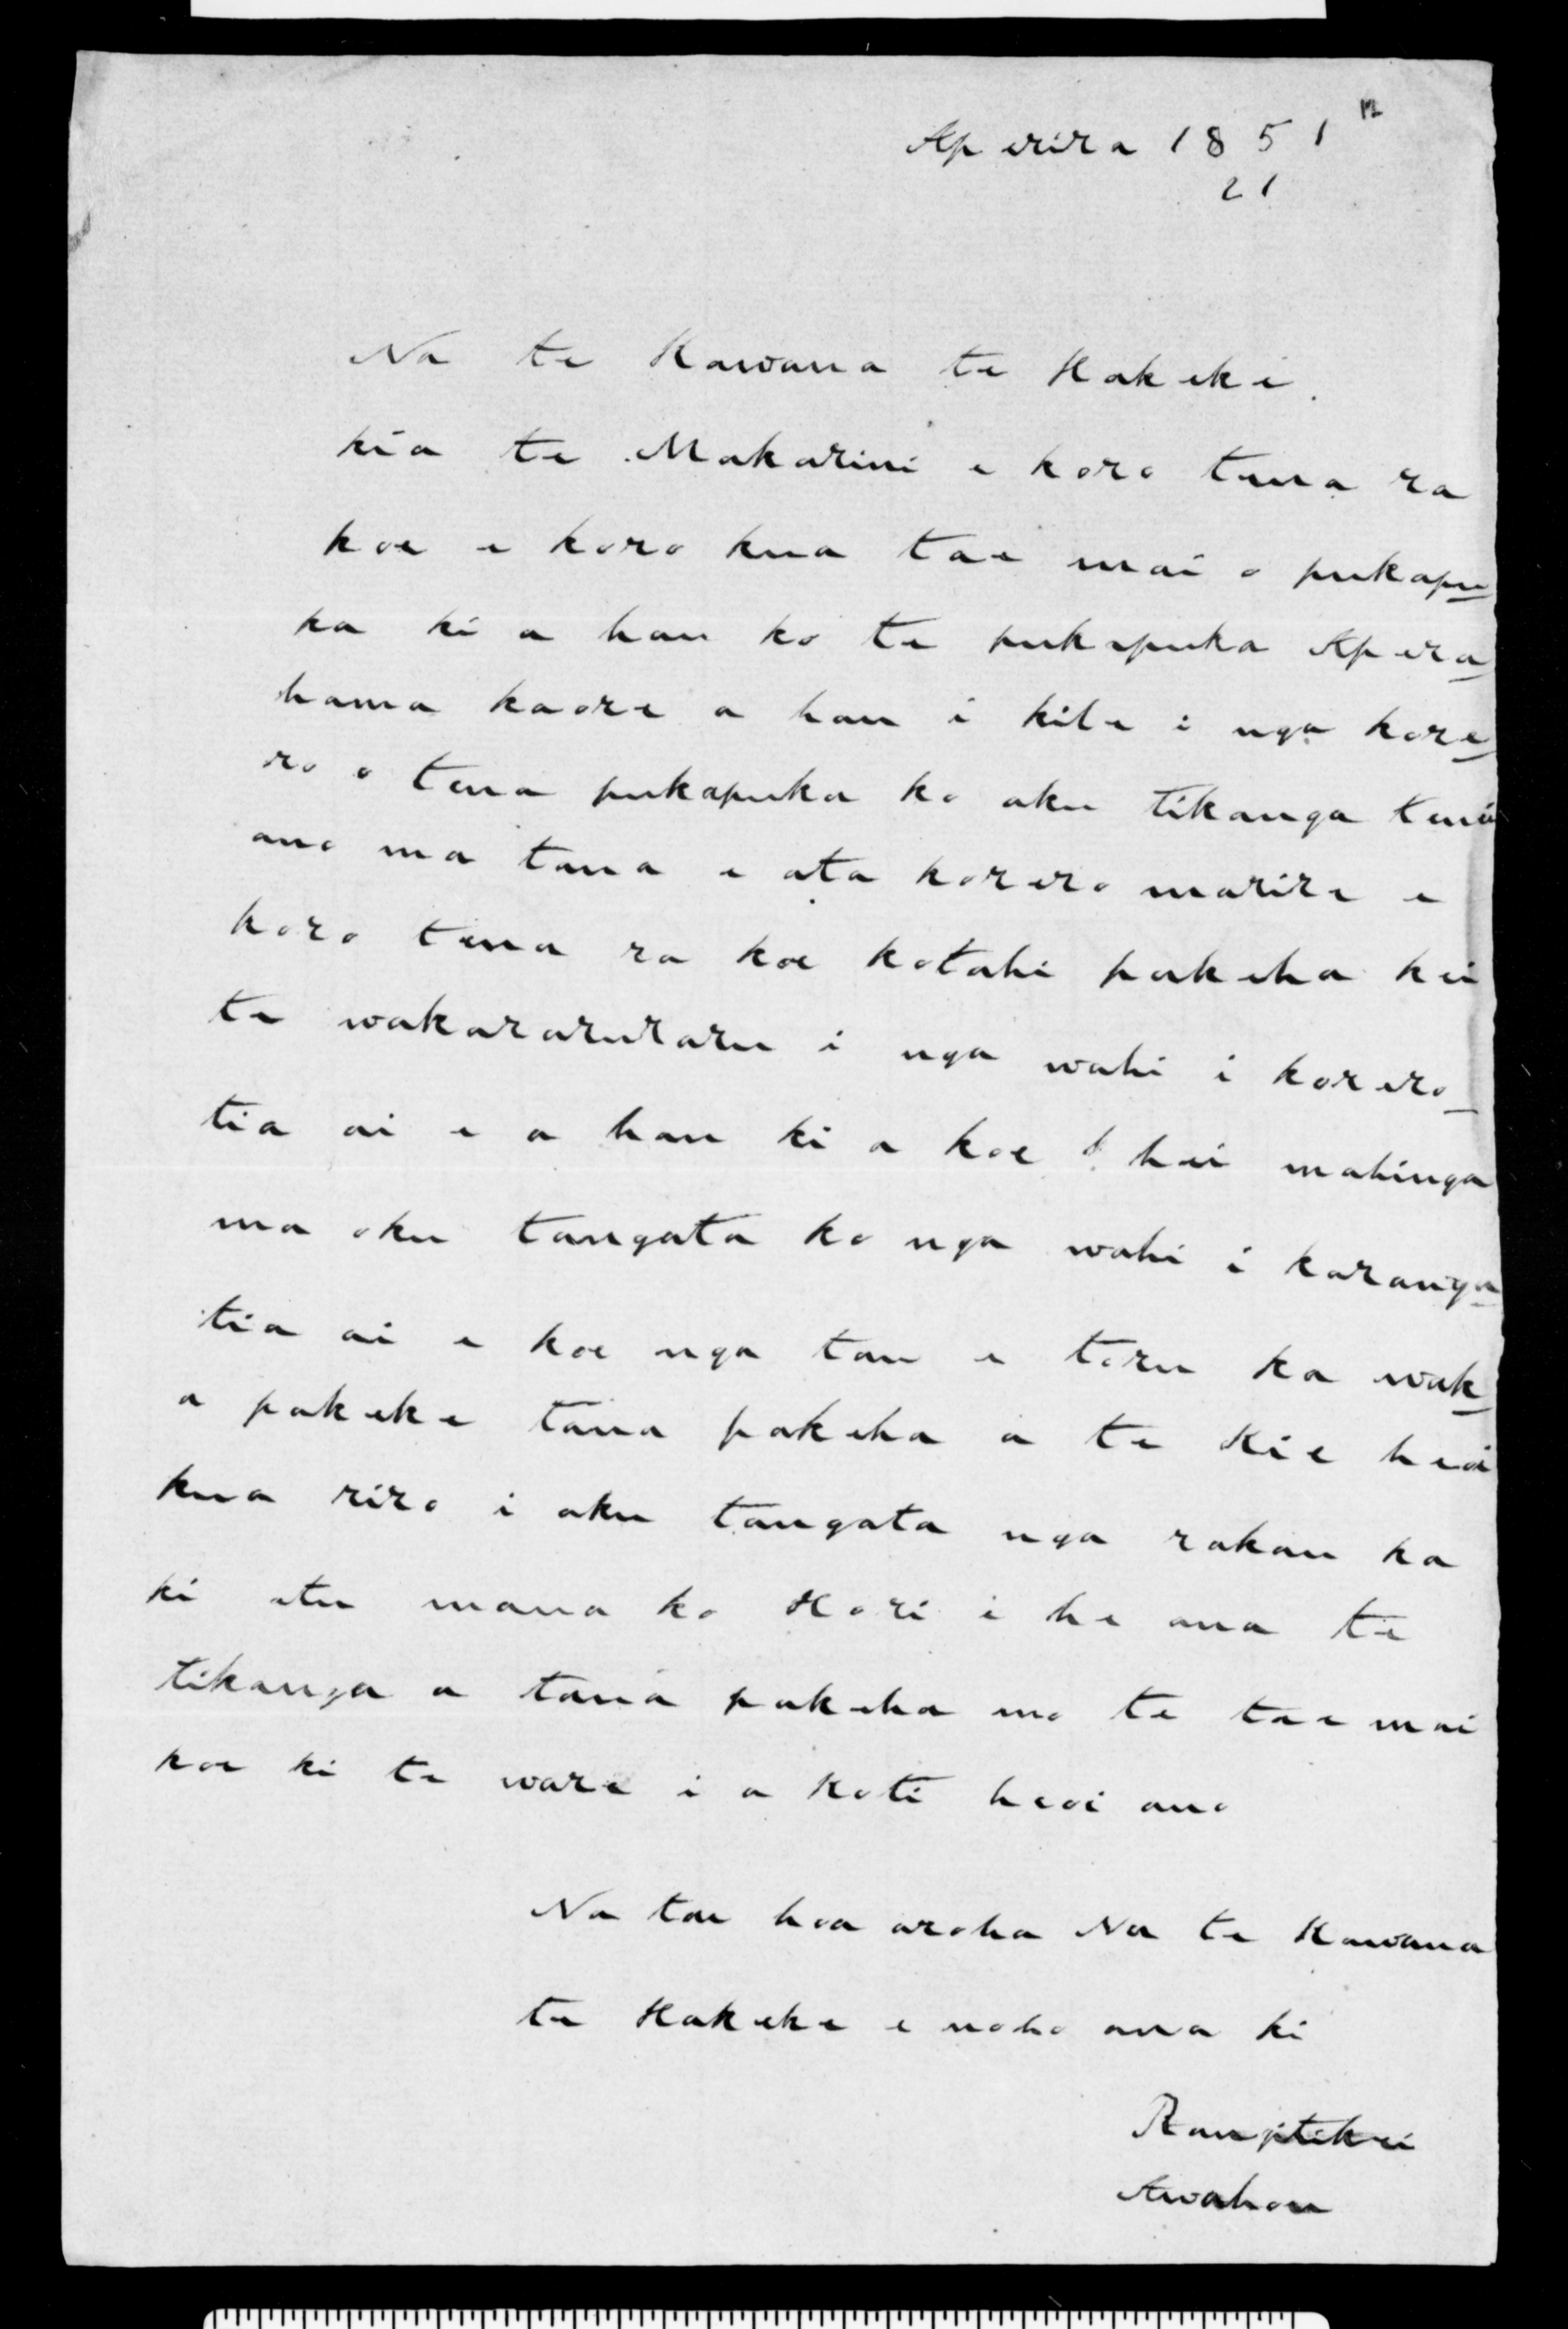 12
Aperira 1851
21
Na te Kawana te Hakeke.
kia te Makarini e koro tena ra
koe e koro kua tae mai o pukapu
ka ki a hau ko te pukapuka Apera
hama kaore a hau i kite i nga kore
ro o tena pukapuka ko aku tikanga tena
ano ma tana e ata korero marire e
koro tena ra koe kotahi pakeha kei
te wakararuraru i nga wahi i korero
tia ai e a hau ki a koe hei mahinga
ma oku tangata ko nga wahi i karanga
tia ai e koe nga tau e toru ka wak
a pakeke tana pakeha a te Kie heoi
kua riro i aku tangata nga rakau ka
ki atu mana ko Hori i he ana te
tikanga a tana pakeha mo te tae mai
koe ki te ware i a Koti heoi ano
Na tou hoa aroha Na te Kawana
te Hakeke e noho ana ki
Rangitikei
Awahou